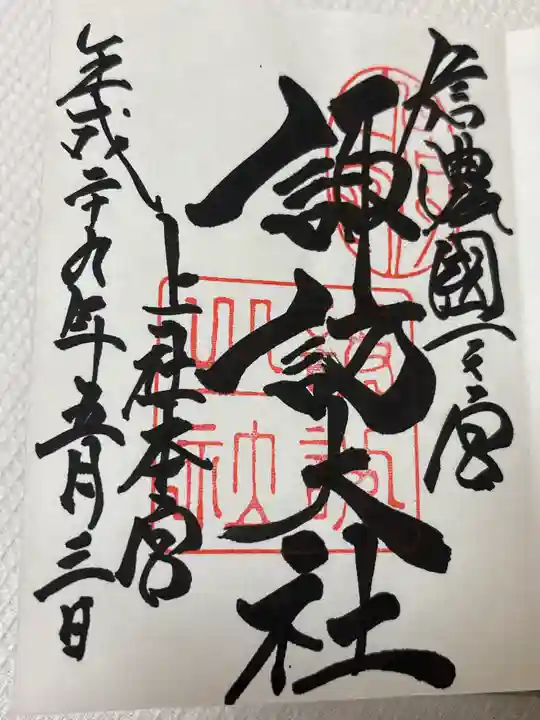 信濃國一之宮
諏訪大社
上社本宮
平成二十九年五月三日
諏訪大社